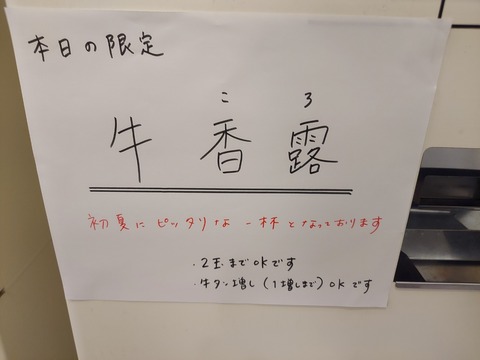 本日の限定
こ ろ
牛香露
初夏にピッタリな一杯となっております
・2玉までOKです
・牛タン増し(1増しまで)OKです